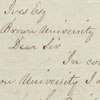 Ives Esq
Brown University
Dear Sir
In con
n University I a